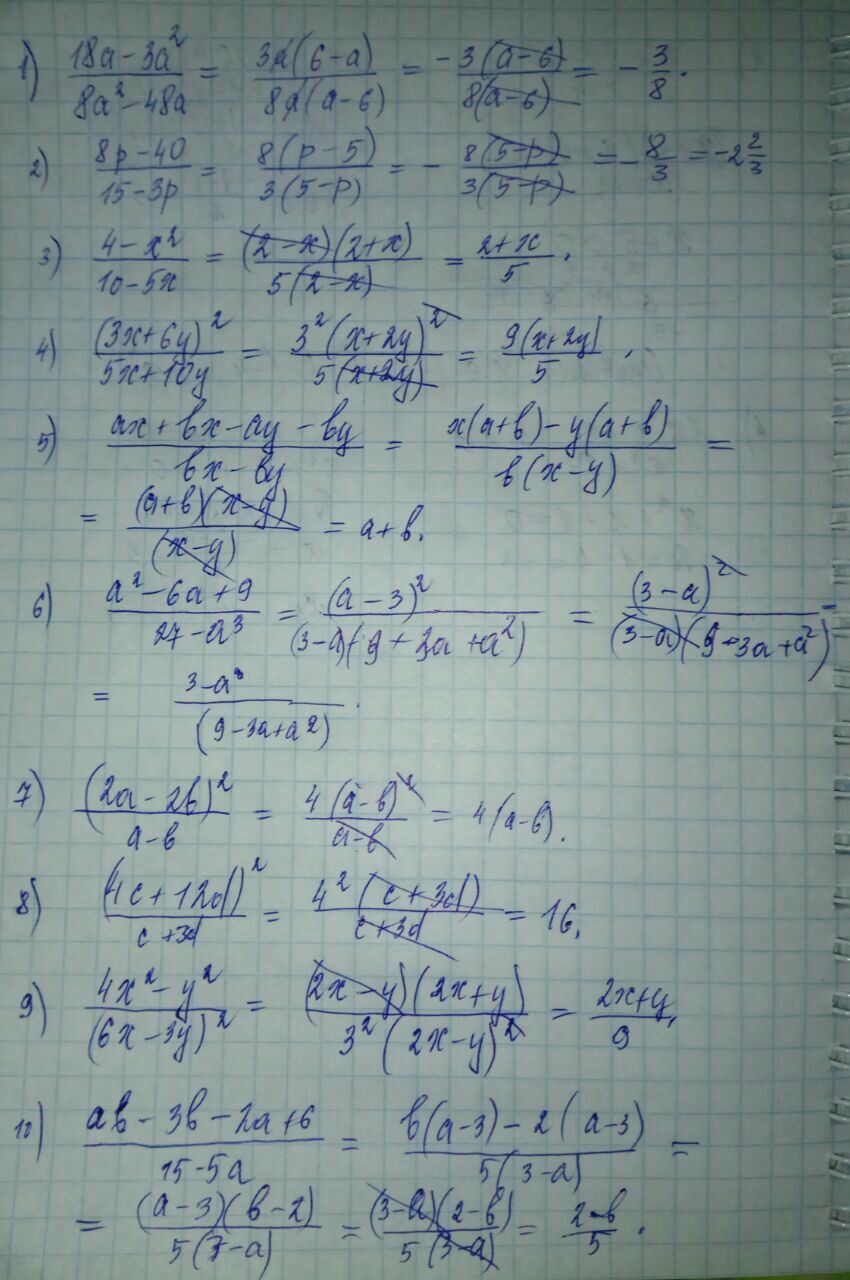 1) (18a - 3a²)/(8a² - 48a) = (3a(6-a))/(8a(a-6)) = -(3(a-6))/(8(a-6)) = -3/8.
2) (8p - 40)/(15 - 3p) = (8(p-5))/(3(5-p)) = -(8(5-p))/(3(5-p)) = -8/3 = -2 2/3
3) (4 - x²)/(10 - 5x) = ((2-x)(2+x))/(5(2-x)) = (2+x)/5.
4) (3x+6y)²/(5x+10y) = (3²(x+2y)²)/(5(x+2y)) = (9(x+2y))/5.
5) (ax + bx - ay - by)/(bx - by) = (x(a+b) - y(a+b))/(b(x-y)) =
= ((a+b)(x-y))/(x-y) = a+b.
6) (a² - 6a + 9)/(27 - a³) = (a-3)²/((3-a)(9+3a+a²)) = (3-a)²/((3-a)(9+3a+a²)) =
= (3-a)/(9-3a+a²).
7) (2a - 2b)²/(a-b) = (4(a-b)²)/(a-b) = 4(a-b).
8) (4c + 12d)²/(c+3d) = (4²(c+3d))/(c+3d) = 16.
9) (4x² - y²)/(6x - 3y)² = ((2x-y)(2x+y))/(3²(2x-y)²) = (2x+y)/9.
10) (ab - 3b - 2a + 6)/(15 - 5a) = (b(a-3) - 2(a-3))/(5(3-a)) =
= ((a-3)(b-2))/(5(3-a)) = ((3-a)(2-b))/(5(3-a)) = (2-b)/5.